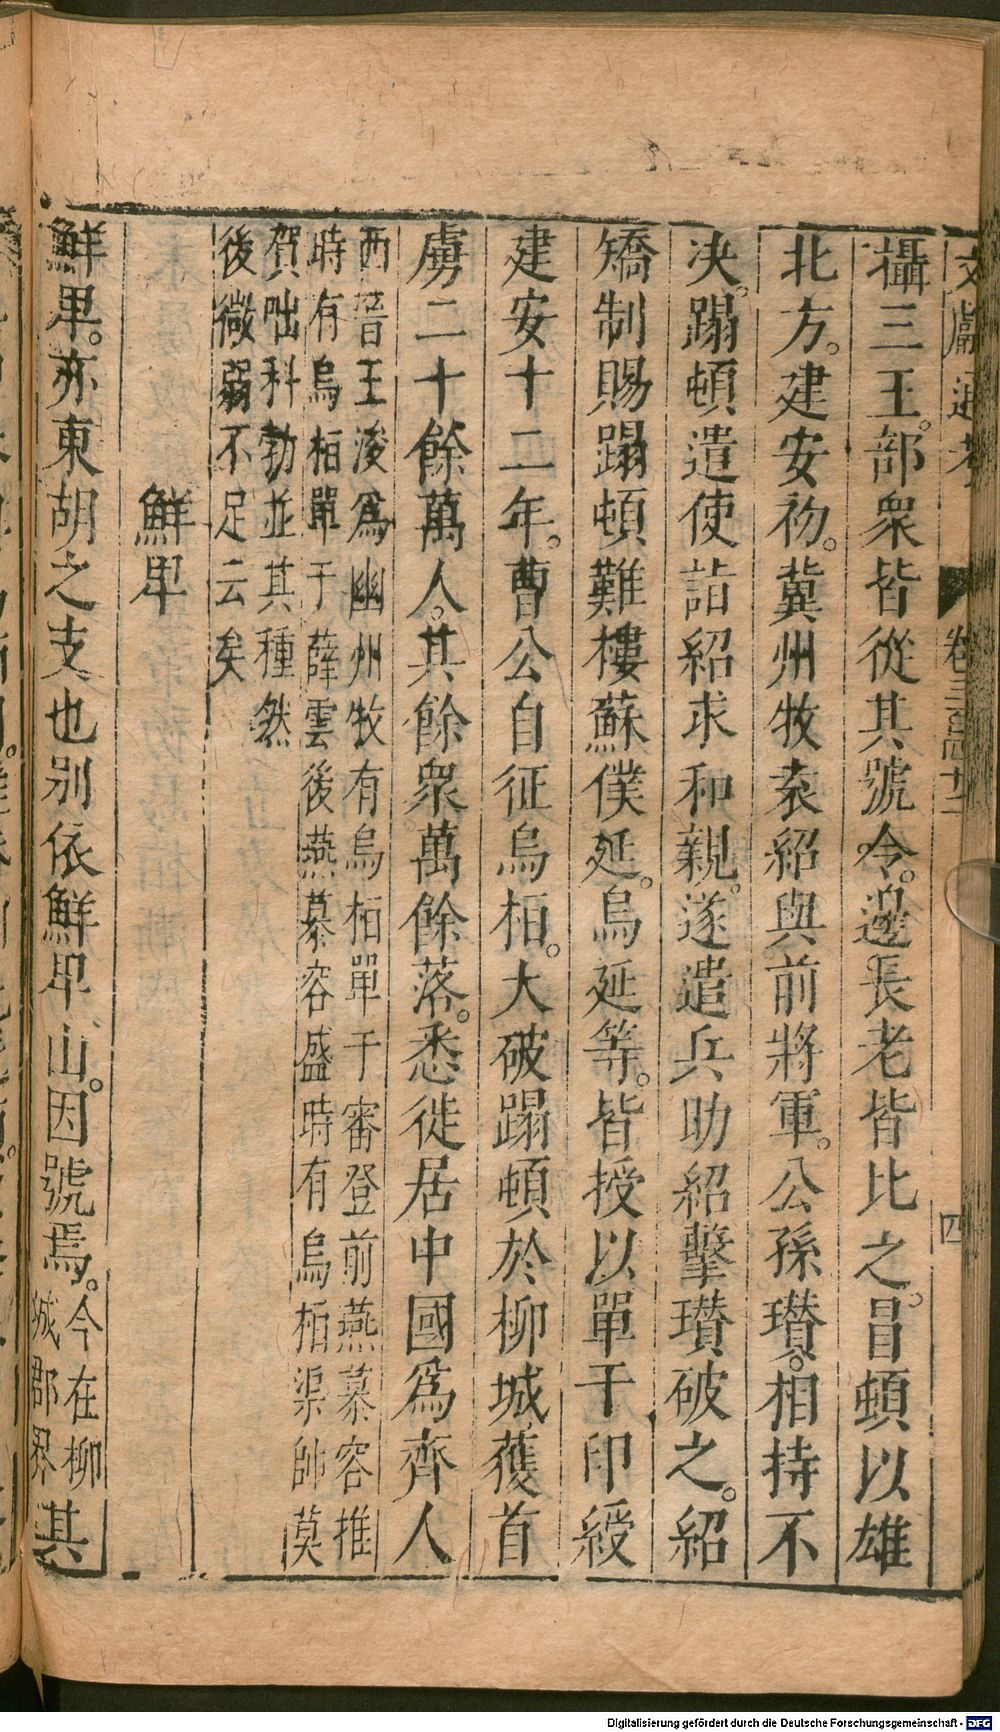 文獻通考
卷三百四十二
四
攝三王。部衆皆從其號令。邊長老皆比之。冒頓以雄
北方。建安初。冀州牧袁紹與前將軍。公孫瓉。相持不
決。蹋頓遣使詣紹求和親。遂遣兵助紹擊瓉破之。紹
矯制賜蹋頓難樓蘇僕延。烏延等。皆授以單于印綬
建安十二年。曹公自征烏桓。大破蹋頓於柳城獲首
虜二十餘萬人。其餘衆萬餘落。悉徙居中國爲齊人
西晉王浚爲幽州牧有烏桓單于審登前燕慕容推
時有烏桓單于薛雲後燕慕容盛時有烏桓渠帥莫
賀咄科勃並其種然
後微弱不足云矣
鮮卑
鮮卑。亦東胡之支也别依鮮卑山。因號焉。今在柳
城郡界其
Digitalisierung gefördert durch die Deutsche Forschungsgemeinschaft - DFG